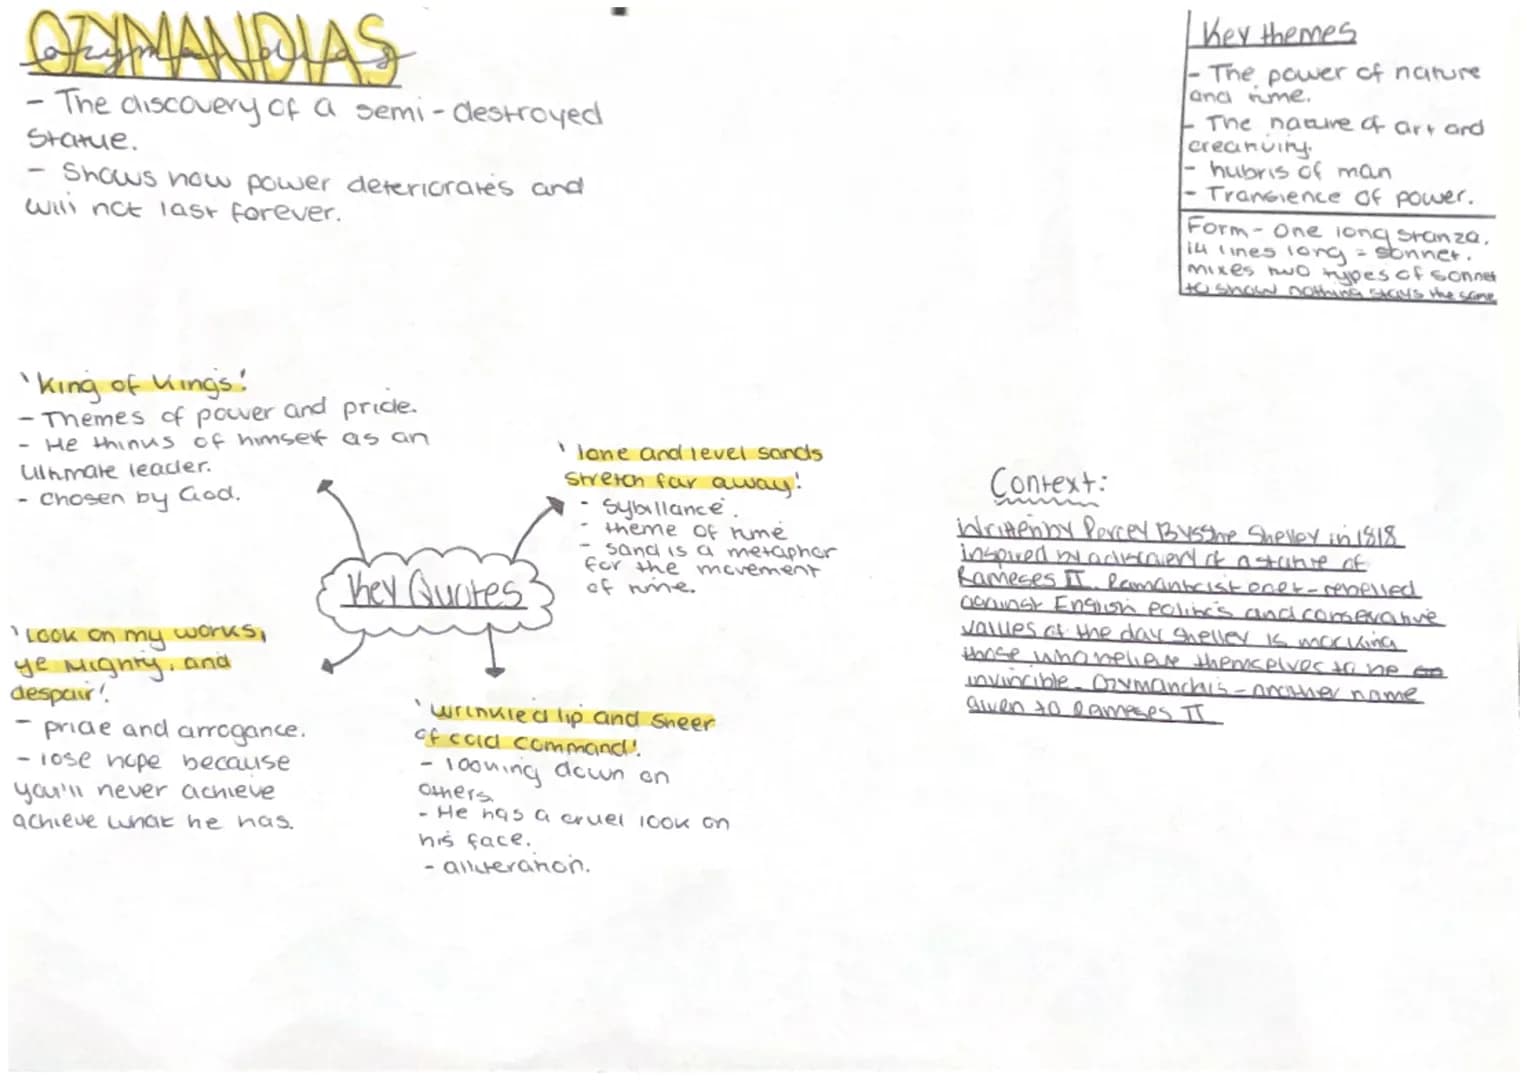 OZYMANDIAS
ozymandias
- The discovery of a semi-destroyed
statue.
- Shows how power deteriorates and
will not last forever.
Key themes
- The power of nature
and time.
- The nature of art and
creativity.
- hubris of man
- Transience of power.
Form - One long stanza.
14 lines long = sonnet.
mixes two types of sonnet
to show nothing stays the same
'King of Kings'.
- Themes of power and pride.
- He thinks of himself as an
ultimate leader.
- Chosen by God.
'lone and level sands
stretch far away'.
- Sybillance.
- theme of time
- sand is a metaphor
for the movement
of time.
Key Quotes
'Look on my works,
ye Mighty, and
despair'.
- pride and arrogance.
- lose hope because
you'll never achieve
achieve what he has.
'wrinkled lip and sneer
of cold command'.
- looking down on
others
- He has a cruel look on
his face.
- alliteration.
Context:
Written by Percey Bysshe Shelley in 1818
inspired by of a statue of
Rameses II. Romanticist - rebelled
against English politics and conservative
values of the day Shelley is mocking
those who believe themselves to be
invincible. - another name
given to Rameses II